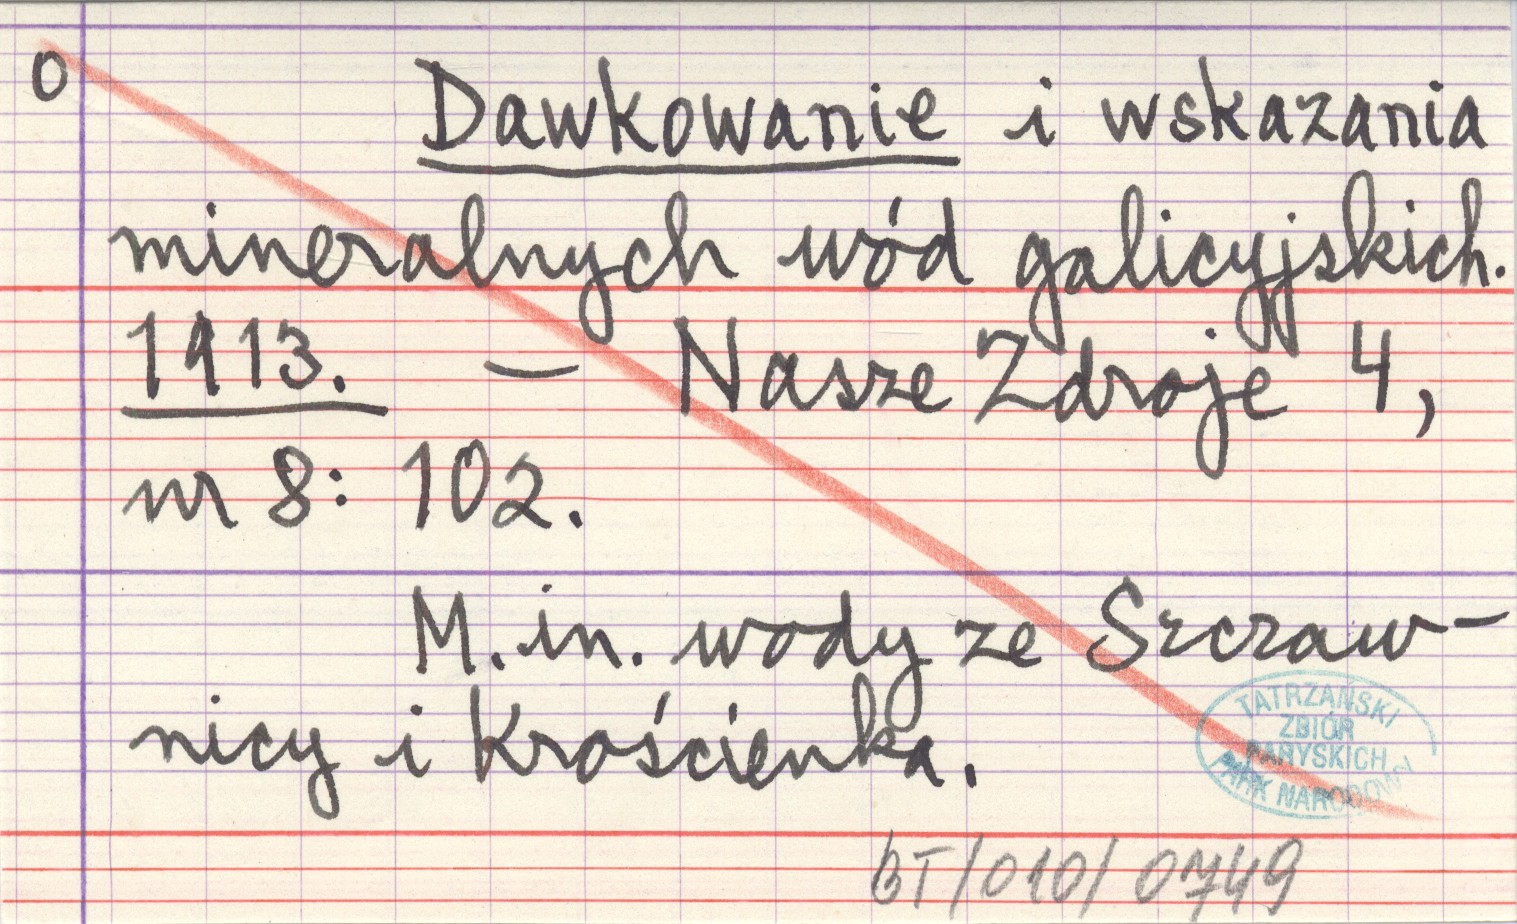 o Dawkowanie i wskazania
mineralnych wód galicyjskich.
1913. — Nasze Zdroje 4,
nr 8: 102.
M. in. wody ze Szczaw-
nicy i Krościenka.
TATRZAŃSKI
ZBIÓR
PARYSKICH
PARK NARODOWY
BT/010/0749